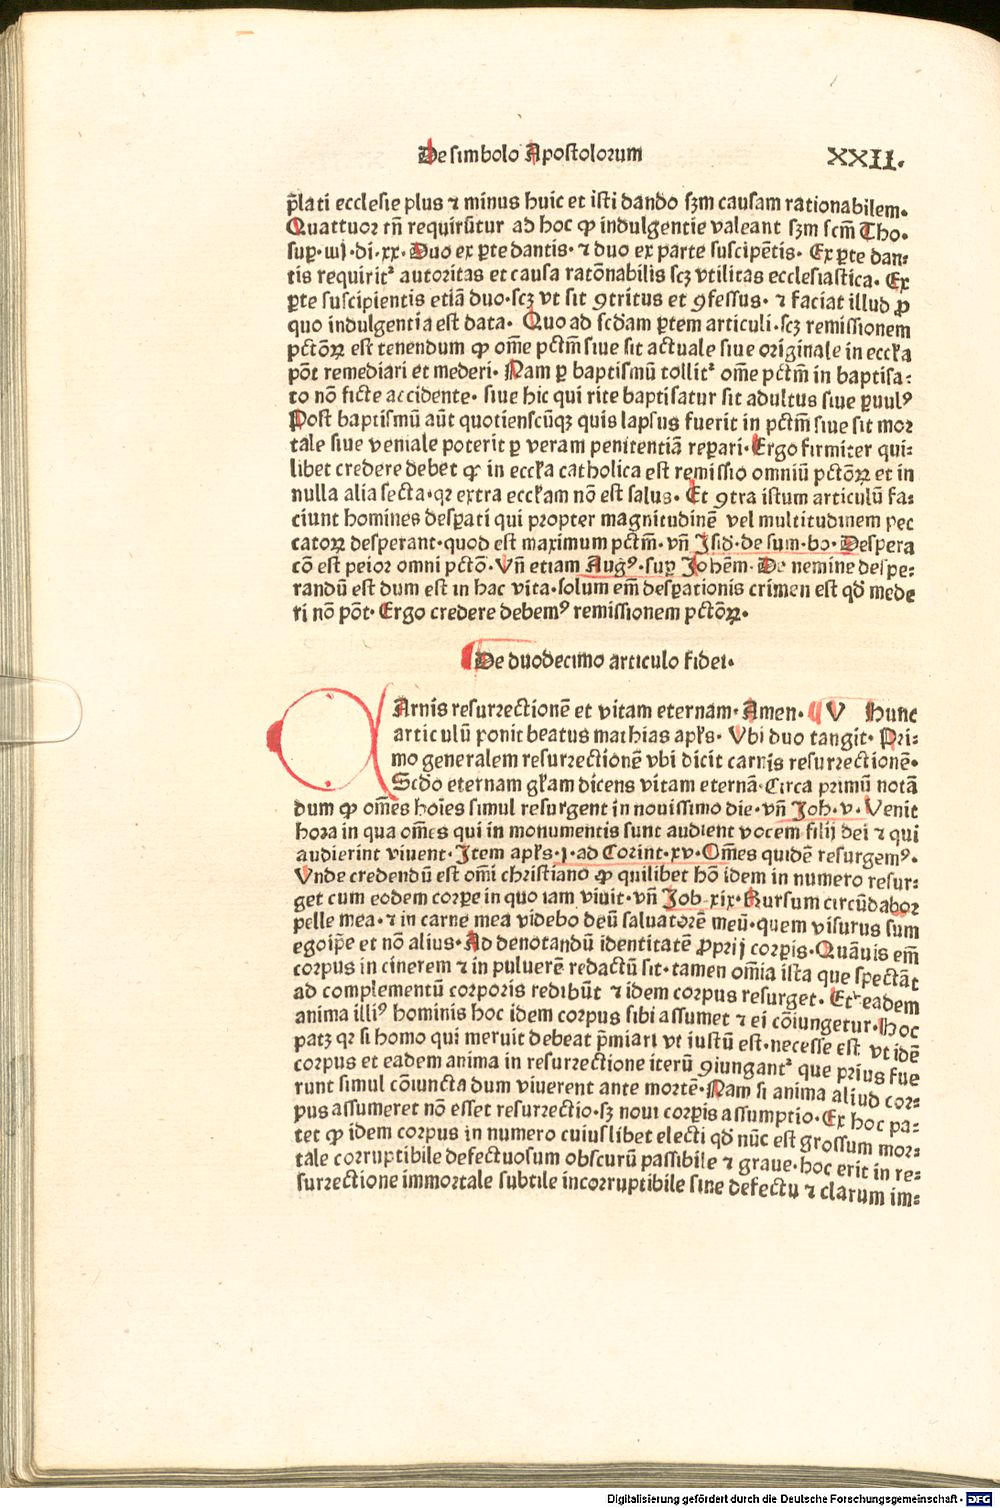 De simbolo Apostolorum XXII.
p̄lati ecclesie plus ⁊ minus huic et isti dando sꝫm causam rationabilem.
Quattuor tn̄ requirūtur ad hoc ꝙ indulgentie valeant sꝫm scm̄ Tho.
suꝑ. iiij. di. xx. Duo ex ꝑte dantis. ⁊ duo ex parte suscipētis. Ex ꝑte dan⸗
tis requirit᷑ autoritas et causa ratōnabilis scꝫ vtilitas ecclesiastica. Ex
ꝑte suscipientis etiā duo. scꝫ vt sit ꝯtritus et ꝯfessus. ⁊ faciat illud ꝓ
quo indulgentia est data. Quo ad scdam ꝑtem articuli. scꝫ remissionem
pctōꝝ est tenendum ꝙ om̄e pctm̄ siue sit actuale siue originale in eccłia
pōt remediari et mederi. Nam ꝑ baptismū tollit᷑ om̄e pctm̄ in baptisa⸗
to nō ficte accidente. siue hic qui rite baptisatur sit adultus siue ꝑuulꝰ
Post baptismū aūt quotienscūqꝫ quis lapsus fuerit in pctm̄ siue sit mor
tale siue veniale poterit ꝑ veram penitentiā reꝑari. Ergo firmiter qui⸗
libet credere debet ꝙ in eccłia catholica est remissio omniū pctōꝝ et in
nulla alia secta. qꝛ extra eccłiam nō est salus. Et ꝯtra istum articulū fa⸗
ciunt homines desꝑati qui propter magnitudinē vel multitudinem pec
catoꝝ desperant. quod est maximum pctm̄. vn̄ Jsid. de sum. bo. Despera
cō est peior omni pctō. Vn̄ etiam Augꝰ. suꝑ Johēm. De nemine despe⸗
randū est dum est in hac vita. solum em̄ desꝑationis crimen est qd̄ mede
ri nō pōt. Ergo credere debemꝰ remissionem pctōꝝ.
De duodecimo articulo fidei.
Arnis resurrectionē et vitam eternam. Amen. V Hunc
articulū ponit beatus mathias apłs. Vbi duo tangit. Pri⸗
mo generalem resurrectionē vbi dicit carnis resurrectionē.
Scdo eternam głiam dicens vitam eternā. Circa primū notā
dum ꝙ om̄es hoīes simul resurgent in nouissimo die. vn̄ Joh. v. Venit
hora in qua om̄es qui in monumentis sunt audient vocem filij dei ⁊ qui
audierint viuent. Jtem apłs. j. ad Corint. xv. Om̄es quidē resurgemꝰ.
Vnde credendū est om̄i christiano ꝙ quilibet hō idem in numero resur⸗
get cum eodem corꝑe in quo iam viuit. vn̄ Job. xix. Rursum circūdabor
pelle mea. ⁊ in carne mea videbo deū saluatorē meū. quem visurus sum
egoip̄e et nō alius. Ad denotandū identitatē ꝓprij corꝑis. Quāuis em̄
corpus in cinerem ⁊ in puluerē redactū sit. tamen om̄ia ista que spectāt
ad complementū corporis redibūt ⁊ idem corpus resurget. Et eadem
anima illiꝰ hominis hoc idem corpus sibi assumet ⁊ ei cōiungetur. Hoc
patꝫ qꝛ si homo qui meruit debeat p̄miari vt iustū est. necesse est vt idē
corpus et eadem anima in resurrectione iterū ꝯiungant᷑ que prius fue
runt simul cōiuncta dum viuerent ante mortē. Nam si anima aliud cor⸗
pus assumeret nō esset resurrectio. sꝫ noui corꝑis assumptio. Ex hoc pa⸗
tet ꝙ idem corpus in numero cuiuslibet electi qd̄ nūc est grossum mor⸗
tale corruptibile defectuosum obscurū passibile ⁊ graue. hoc erit in re⸗
surrectione immortale subtile incorruptibile sine defectu ⁊ clarum im⸗
Digitalisierung gefördert durch die Deutsche Forschungsgemeinschaft - DFG